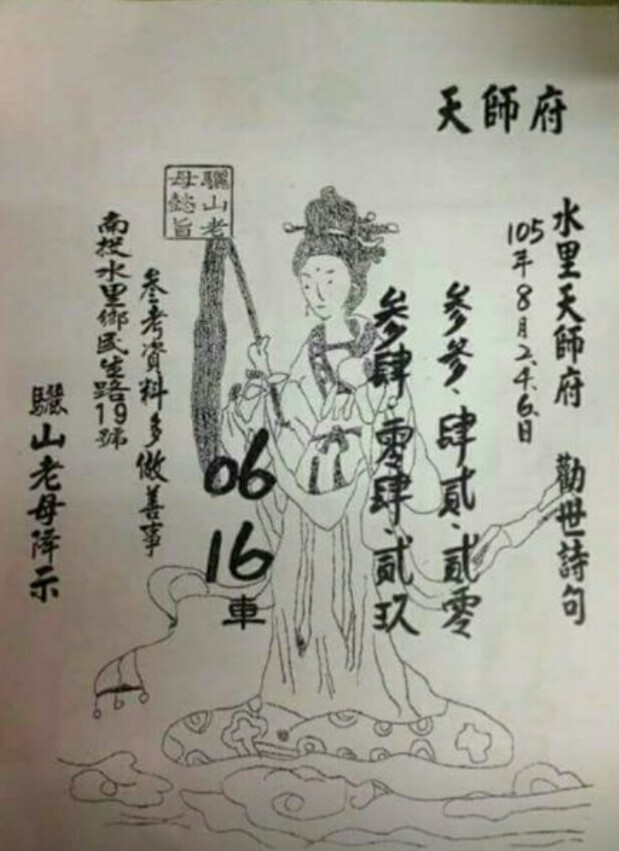 天師府
水里天師府 勸世詩句
105年8月2.4.6.日
參參.肆貳.貳零
參肆.零肆.貳玖
06
16
車
驪山老母懿旨
參考資料多做善事
南投水里鄉民生路19號
驪山老母降示